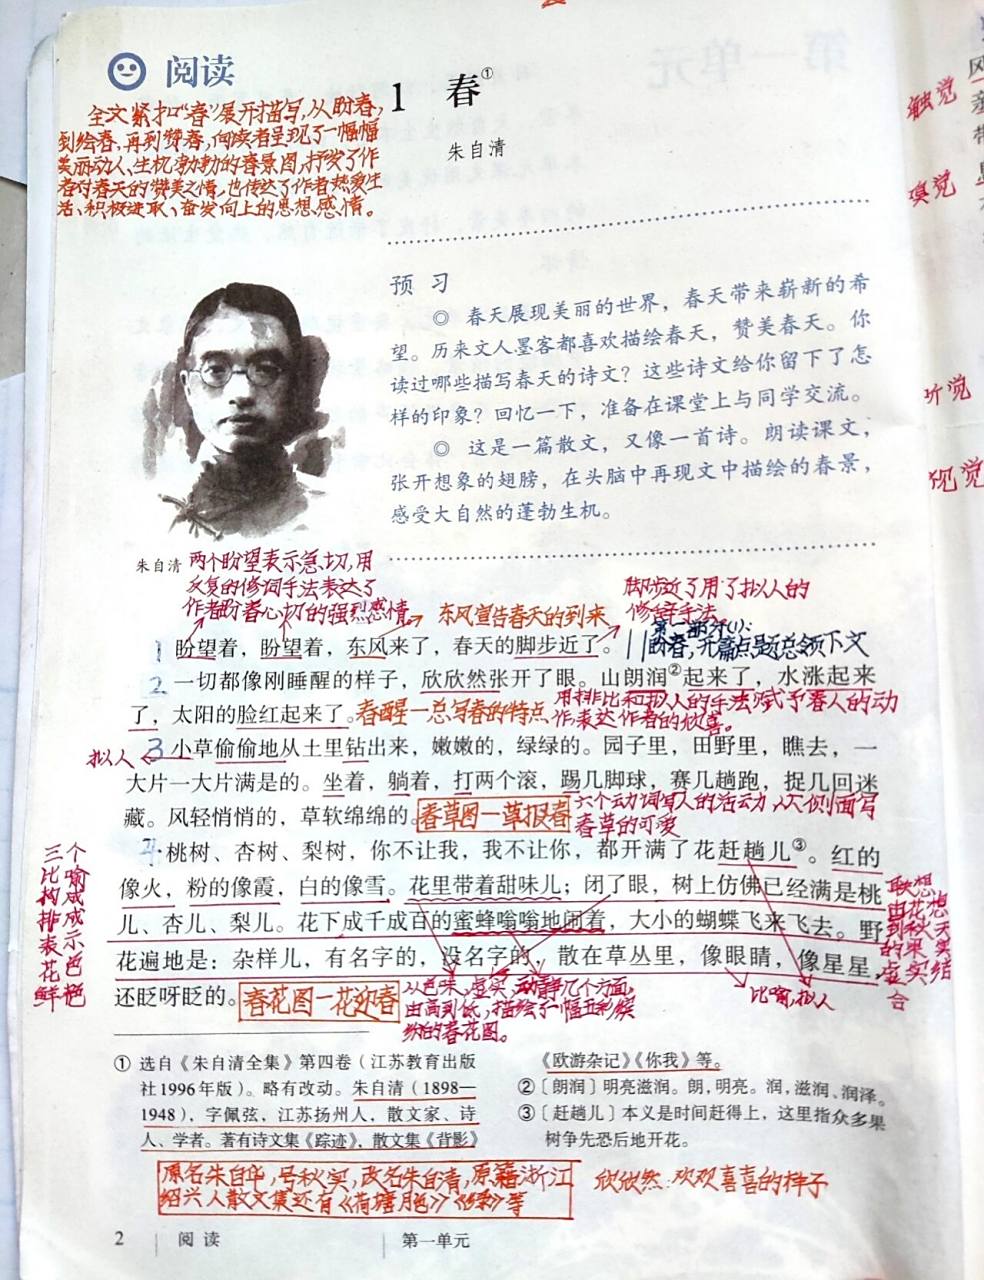 阅读
全文紧扣“春”展开描写,从盼春,
到绘春,再到赞春,向读者呈现了一幅幅
美丽动人、生机勃勃的春景图,抒发了作
者对春天的赞美之情,也传达了作者热爱生
活、积极进取、奋发向上的思想感情。
1 春①
朱自清
触觉
嗅觉
听觉
视觉
预 习
◎ 春天展现美丽的世界，春天带来崭新的希
望。历来文人墨客都喜欢描绘春天，赞美春天。你
读过哪些描写春天的诗文？这些诗文给你留下了怎
样的印象？回忆一下，准备在课堂上与同学交流。
◎ 这是一篇散文，又像一首诗。朗读课文，
张开想象的翅膀，在头脑中再现文中描绘的春景，
感受大自然的蓬勃生机。
朱自清
两个盼望表示急切,用
反复的修词手法表达了
作者盼春心切的强烈感情
东风宣告春天的到来
脚步近了用了拟人的
修辞手法。
第一部分(1):
盼春,开篇点题总领下文
1 盼望着，盼望着，东风来了，春天的脚步近了。
2 一切都像刚睡醒的样子，欣欣然张开了眼。山朗润②起来了，水涨起来
了，太阳的脸红起来了。
春醒一总写春的特点
用排比和拟人的手法赋予春人的动
作表达作者的欣喜。
拟人
3 小草偷偷地从土里钻出来，嫩嫩的，绿绿的。园子里，田野里，瞧去，一
大片一大片满是的。坐着，躺着，打两个滚，踢几脚球，赛几趟跑，捉几回迷
藏。风轻悄悄的，草软绵绵的。
春草图一草报春
六个动词写人的活动从侧面写
春草的可爱
4 桃树、杏树、梨树，你不让我，我不让你，都开满了花赶趟儿③。红的
像火，粉的像霞，白的像雪。花里带着甜味儿；闭了眼，树上仿佛已经满是桃
儿、杏儿、梨儿。花下成千成百的蜜蜂嗡嗡地闹着，大小的蝴蝶飞来飞去。野
花遍地是：杂样儿，有名字的，没名字的，散在草丛里，像眼睛，像星星，
还眨呀眨的。
三个
比喻
构成
排成
表示
花色
鲜艳
联想
由花想
到秋天
的果实
虚实结
合
春花图一花迎春
从色味、虚实、动静几个方面,
由高到低,描绘了一幅五彩缤
纷的春花图。
比喻,拟人
① 选自《朱自清全集》第四卷（江苏教育出版
社1996年版）。略有改动。朱自清（1898—
1948），字佩弦，江苏扬州人，散文家、诗
人、学者。著有诗文集《踪迹》，散文集《背影》
《欧游杂记》《你我》等。
②〔朗润〕明亮滋润。朗，明亮。润，滋润、润泽。
③〔赶趟儿〕本义是时间赶得上，这里指众多果
树争先恐后地开花。
原名朱自华,号秋实,改名朱自清,原籍浙江
绍兴人散文集还有《荷塘月色》《绿》等
欣欣然:欢欢喜喜的样子
2 阅 读 第一单元